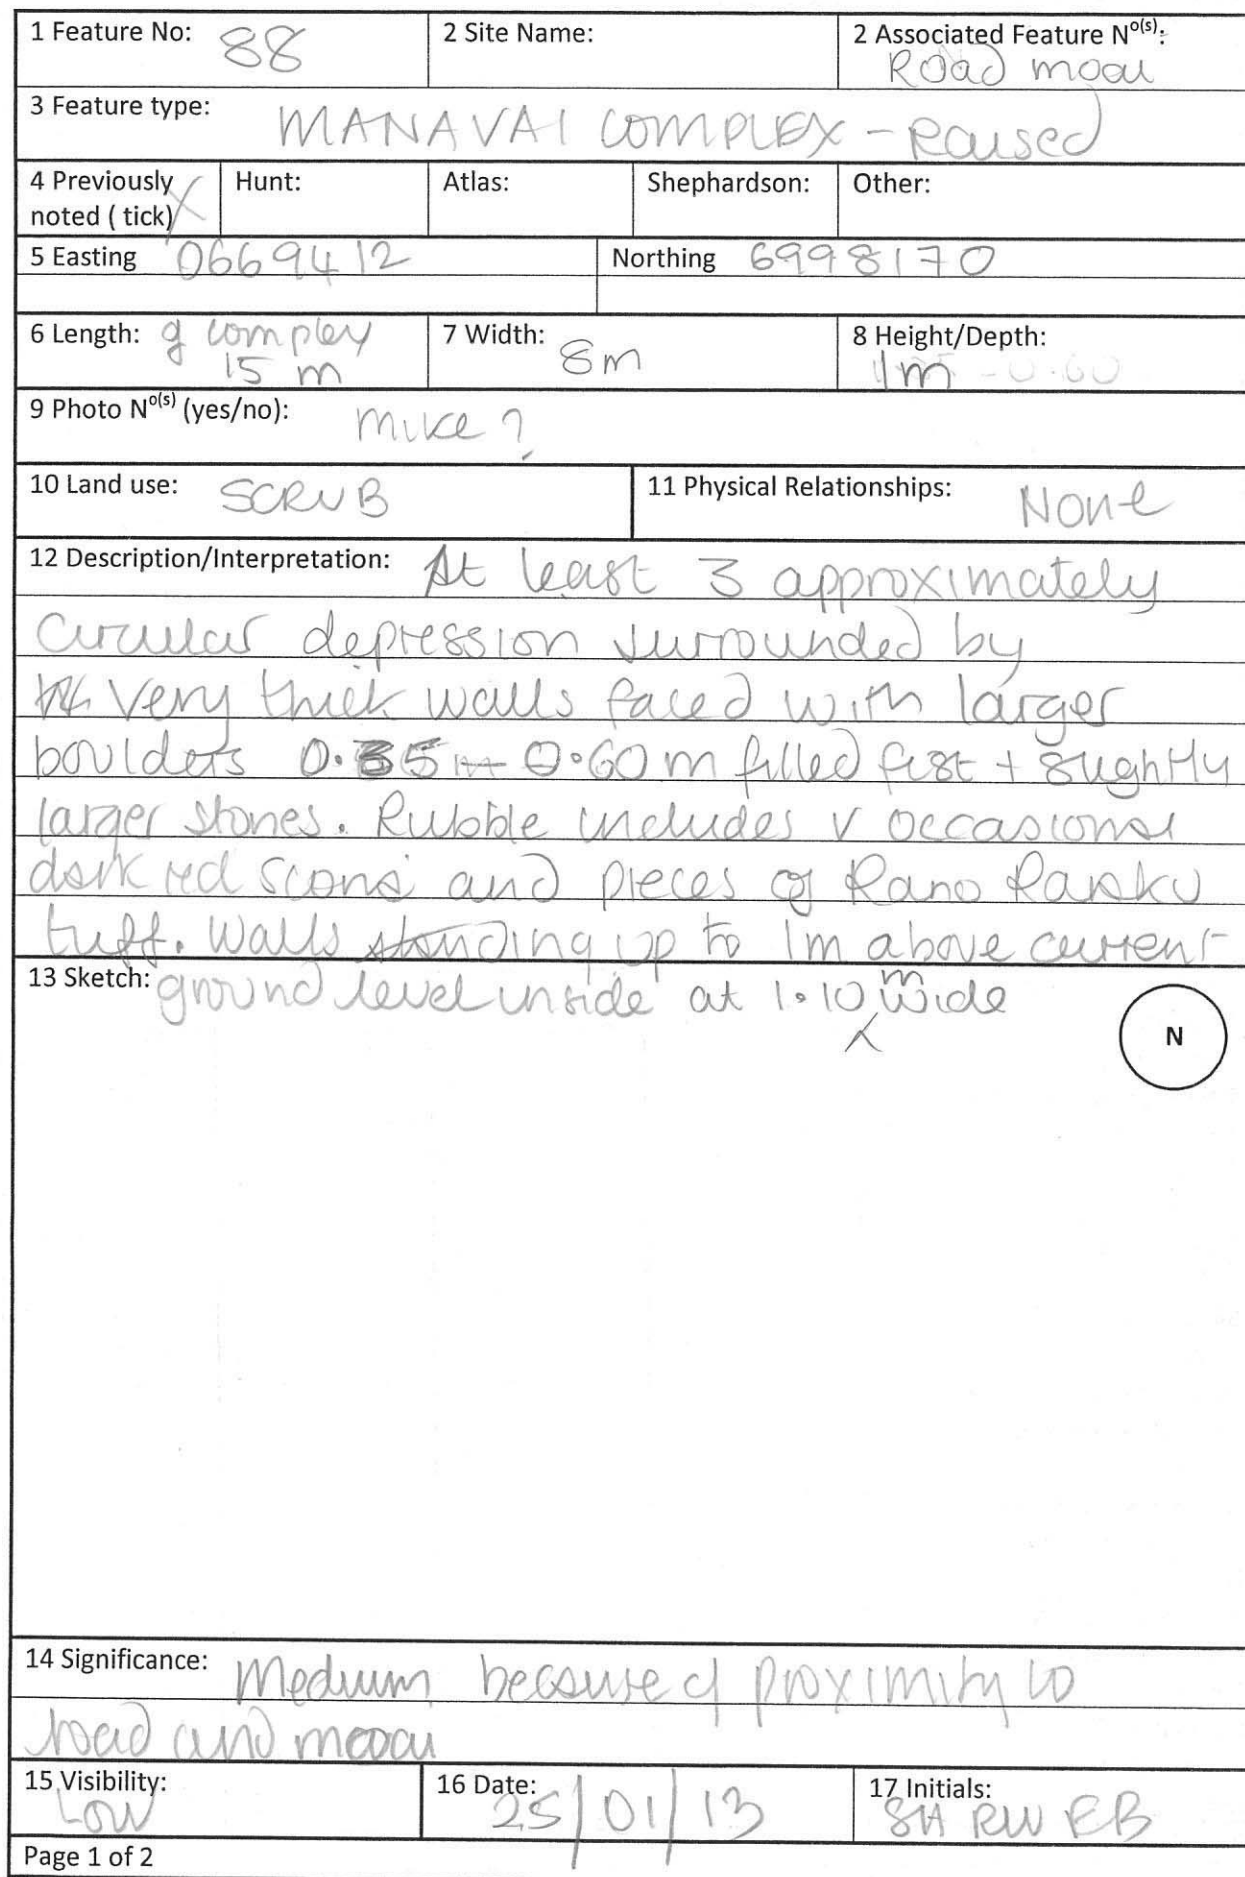 1 Feature No: 88 2 Site Name: 2 Associated Feature No(s):
Road moai
3 Feature type: MANAVAI COMPLEX - Raised
4 Previously noted ( tick) X Hunt: Atlas: Shephardson: Other:
5 Easting 0669412 Northing 6998170
6 Length: of complex 7 Width: 8m 8 Height/Depth:
15 m 1m - 0.60
9 Photo No(s) (yes/no): Mike ?
10 Land use: SCRUB 11 Physical Relationships: None
12 Description/Interpretation: At least 3 approximately
circular depression surrounded by
very thick walls faced with larger
boulders 0.35 m - 0.60 m filled fist + slightly
larger stones. Rubble includes v occasional
dark red scoria and pieces of Rano Raraku
tuff. Walls standing up to 1m above current
13 Sketch: ground level inside at 1.10 m wide
N
14 Significance: Medium because of proximity to
road and moai
15 Visibility: Low 16 Date: 25/01/13 17 Initials: SH RW EB
Page 1 of 2